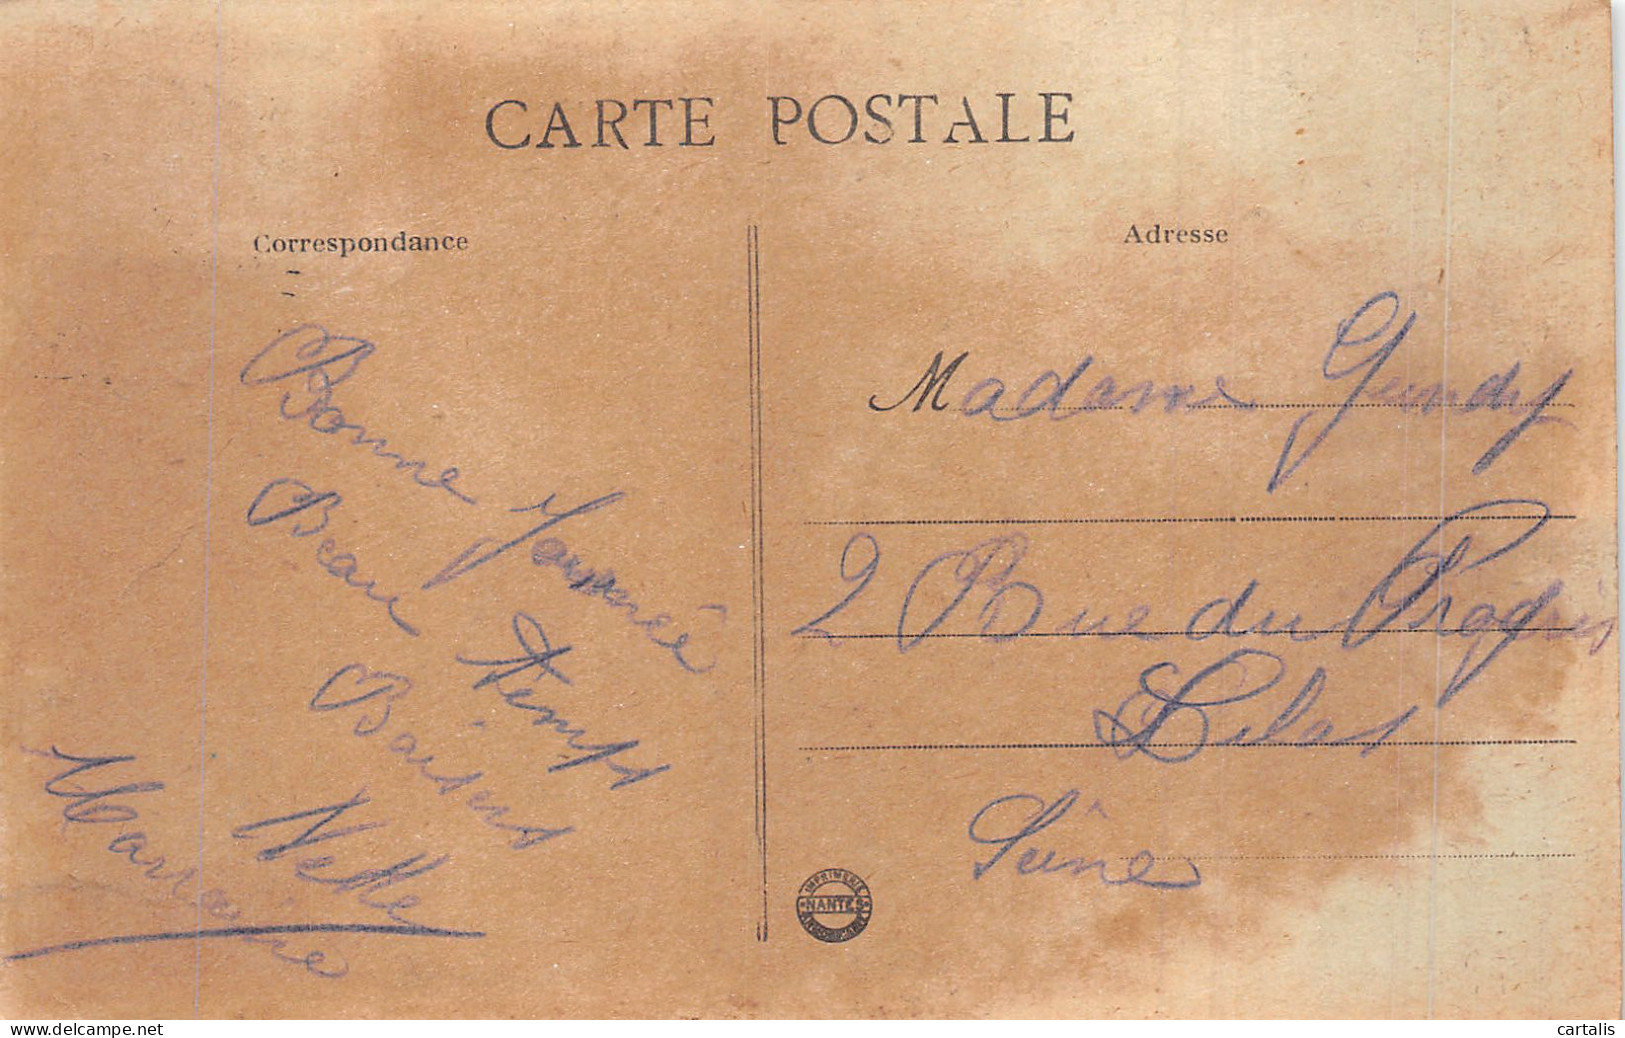 CARTE POSTALE
Correspondance
Bonne Journeé
Beau temps
Baisers
Nelle
Marraine
Adresse
Madame Gundy
2 Rue du Progrès
Lilas
Seine
IMPRIMERIE
NANTES
cartalis
delcampe.net